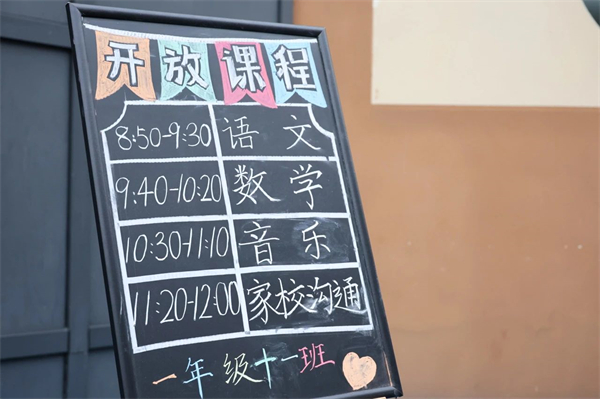 开放课程
8:50-9:30 语文
9:40-10:20 数学
10:30-11:10 音乐
11:20-12:00 家校沟通
一年级十一班